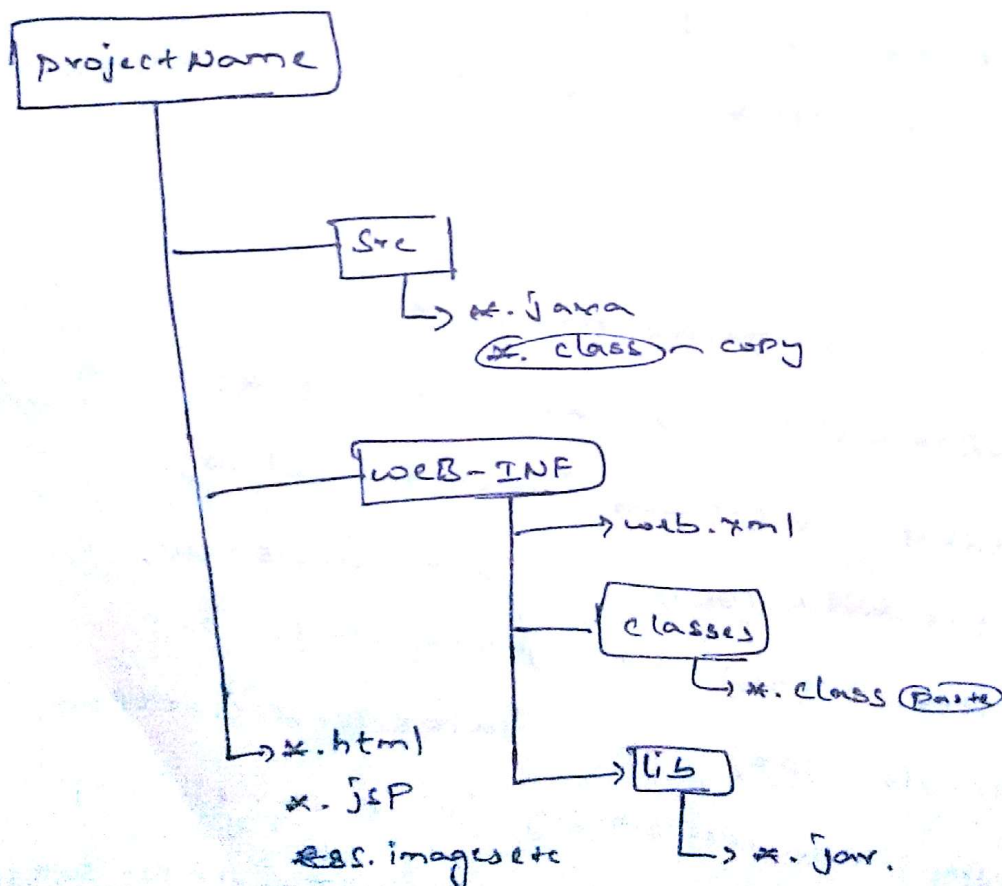 projectName
src
*.java
*.class copy
WEB-INF
web.xml
classes
*.class paste
*.html
lib
*.jsp
css.images etc
*.jar.